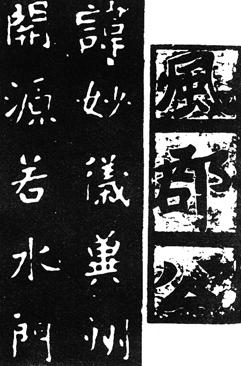 風公
諱妙儀冀州
開源若水門